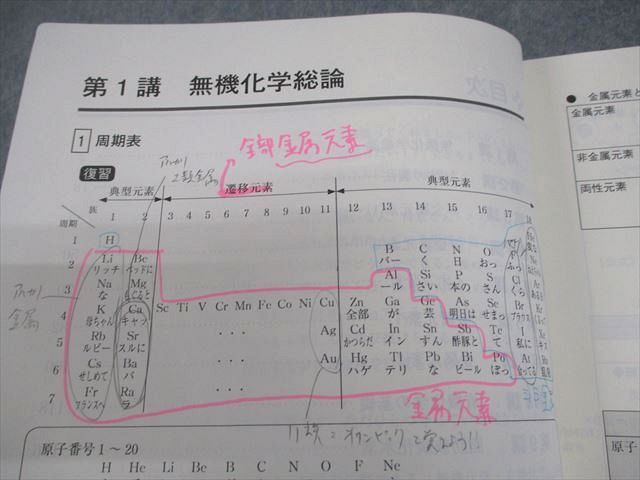 第1講 無機化学総論
1 周期表
全部金属元素
復習
典型元素 遷移元素 典型元素
族 1 2 3 4 5 6 7 8 9 10 11 12 13 14 15 16 17 18
周期
1 H
2 Li Be B C N O
リッチ バー く 日 おっ
3 Na Mg Al Si P S
な ール さい 本の さん
4 K Ca Sc Ti V Cr Mn Fe Co Ni Cu Zn Ga Ge As Se
母ちゃん キャッ 全部 が 芸 明日は せまっ
5 Rb Sr ・・・ Ag Cd In Sn Sb Te
ルビー スルに かつらだ イン すん 酢豚と て
6 Cs Ba ・・・ Au Hg Tl Pb Bi Po
せしめて バ ハゲ テリ な ビール ぽっ
7 Fr Ra
フランスへ ラ
アルカリ
金属
金属元素
11族=オリンピックで覚えよう!!
原子番号1〜20
H He Li Be B C N O F Ne
● 金属元素と
金属元素
非金属元素
両性元素